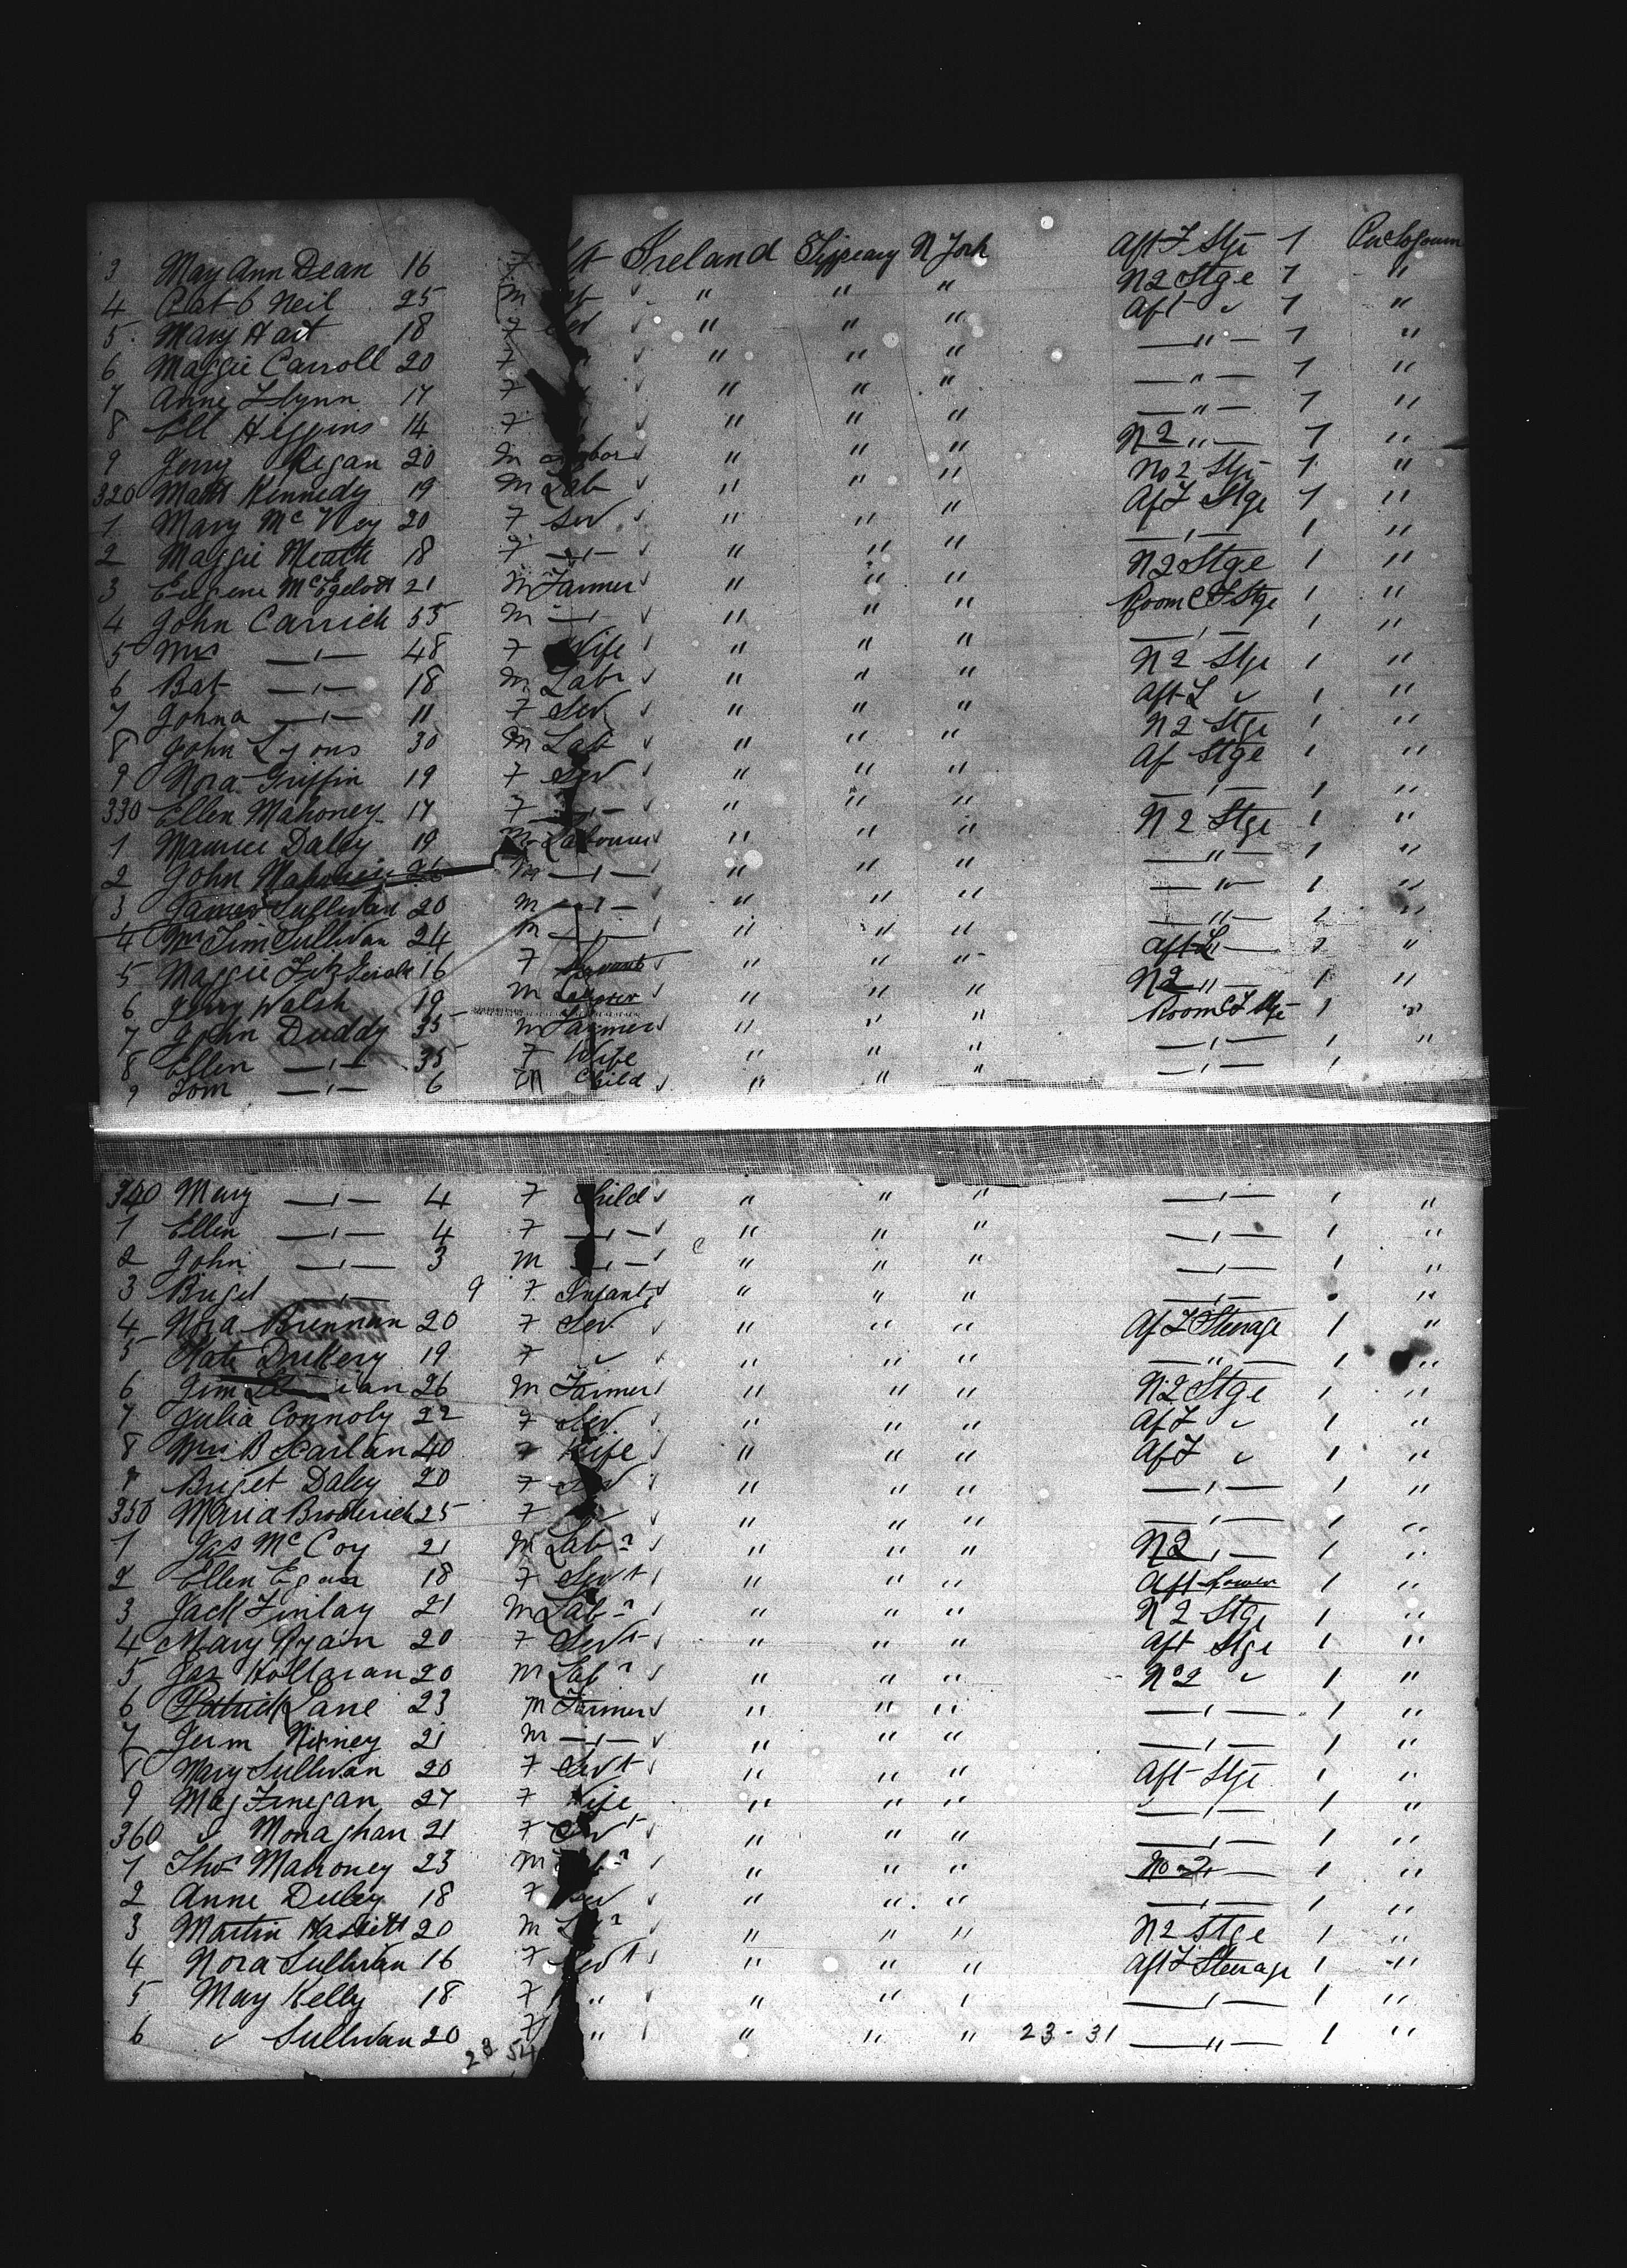 3 May Ann Dean 16 7 Ireland N York Aft Stge 1
4 Pat O Neil 25 m " " " N2 Stge 1 "
5 Mary Hart 18 7 " " " Aft " 1 "
6 Maggie Carroll 20 7 " " " —"— 1 "
7 Anne Flynn 17 7 " " " —"— 1 "
8 Ell Higgins 14 7 " " " —"— 1 "
9 Jerry Regan 20 m " " " N2 "— 1 "
320 Matt Kennedy 19 m Lab " " " No 2 Stge 1 "
1 Mary 20 7 Ser " " " Stge 1 "
2 Maggie 18 7 —"— " " " —"— 1 "
3 Eugene 21 m Farmer " " " N2 Stge 1 "
4 John Carrick 55 m —"— " " " Room Stge 1 "
5 Mrs —"— 48 7 Wife " " " —"— 1 "
6 Bat —"— 18 m Labr " " " N2 Stge 1 "
7 Johna —"— 11 7 Ser " " " Aft 1 "
8 John Lyons 30 m Lab " " " N2 Stge 1 "
9 Nora Griffin 19 7 Ser " " " Af Stge 1 "
330 Ellen Mahoney 17 7 —"— " " " —"— 1 "
1 Maurice Daley 19 m Labourer " " " N2 Stge 1 "
2 John m —"— " " " —"— 1 "
3 James Sullivan 20 m —"— " " " —"— 1 "
4 Jim Sullivan 24 m —"— " " " —"— 1 "
5 Maggie Fitzgerald 16 7 Servant " " " Aft — 1 "
6 Jerry Walsh 19 m " " " N2 "— 1 "
7 John Duddy 35 m Farmer " " " Room Stge 1 "
8 Ellen —"— 35 7 Wife " " " —"— 1 "
9 Tom —"— 6 m Child " " " —"— 1
340 Mary —"— 4 7 Child " " " —"— 1 "
1 Ellen —"— 4 7 —"— " " " —"— 1 "
2 John —"— 3 m —"— " " " —"— 1 "
3 Briget —"— 9 7 Infant " " " —"— "
4 Nora Brennan 20 7 Ser " " " Steerage 1 "
5 Kate 19 7 " " " " —"— 1 "
6 Jim 26 m Farmer " " " N2 Stge 1 "
7 Julia Connoly 22 7 Ser " " " Af " 1 "
8 Mrs B Scarlan 40 7 Wife " " " Af " 1 "
9 Briget Daley 20 7 Ser " " " —"— 1 "
350 Maria Broderick 25 7 " " " " —"— 1 "
1 Jas McCoy 21 m Labr " " " N2 "— 1 "
2 Ellen Egan 18 7 Servt " " " Aft Lower 1 "
3 Jack Finlay 21 m Labr " " " N2 Stge 1 "
4 Mary Ryan 20 7 Servt " " " Aft Stge 1 "
5 Jas 20 m Labr " " " No 2 " 1 "
6 Patrick Lane 23 m Farmer " " " —"— 1 "
7 Jerm 21 m —"— " " " —"— 1 "
8 Mary Sullivan 20 7 Servt " " " Aft Stge 1 "
9 Mag Finegan 27 7 Wife " " " —"— 1 "
360 " Monaghan 21 7 Servt " " " —"— 1 "
1 Thos Mahoney 23 m " " " No 2 — 1 "
2 Anne 18 7 Ser " " " —"— 1 "
3 Martin 20 m " " " N2 Stge 1 "
4 Nora Sullivan 16 7 Servt " " " Aft Steerage 1 "
5 May Kelly 18 7 " " " " —"— 1 "
6 " Sullivan 20 7 " " " " 23-31 —"— 1 "
23 54